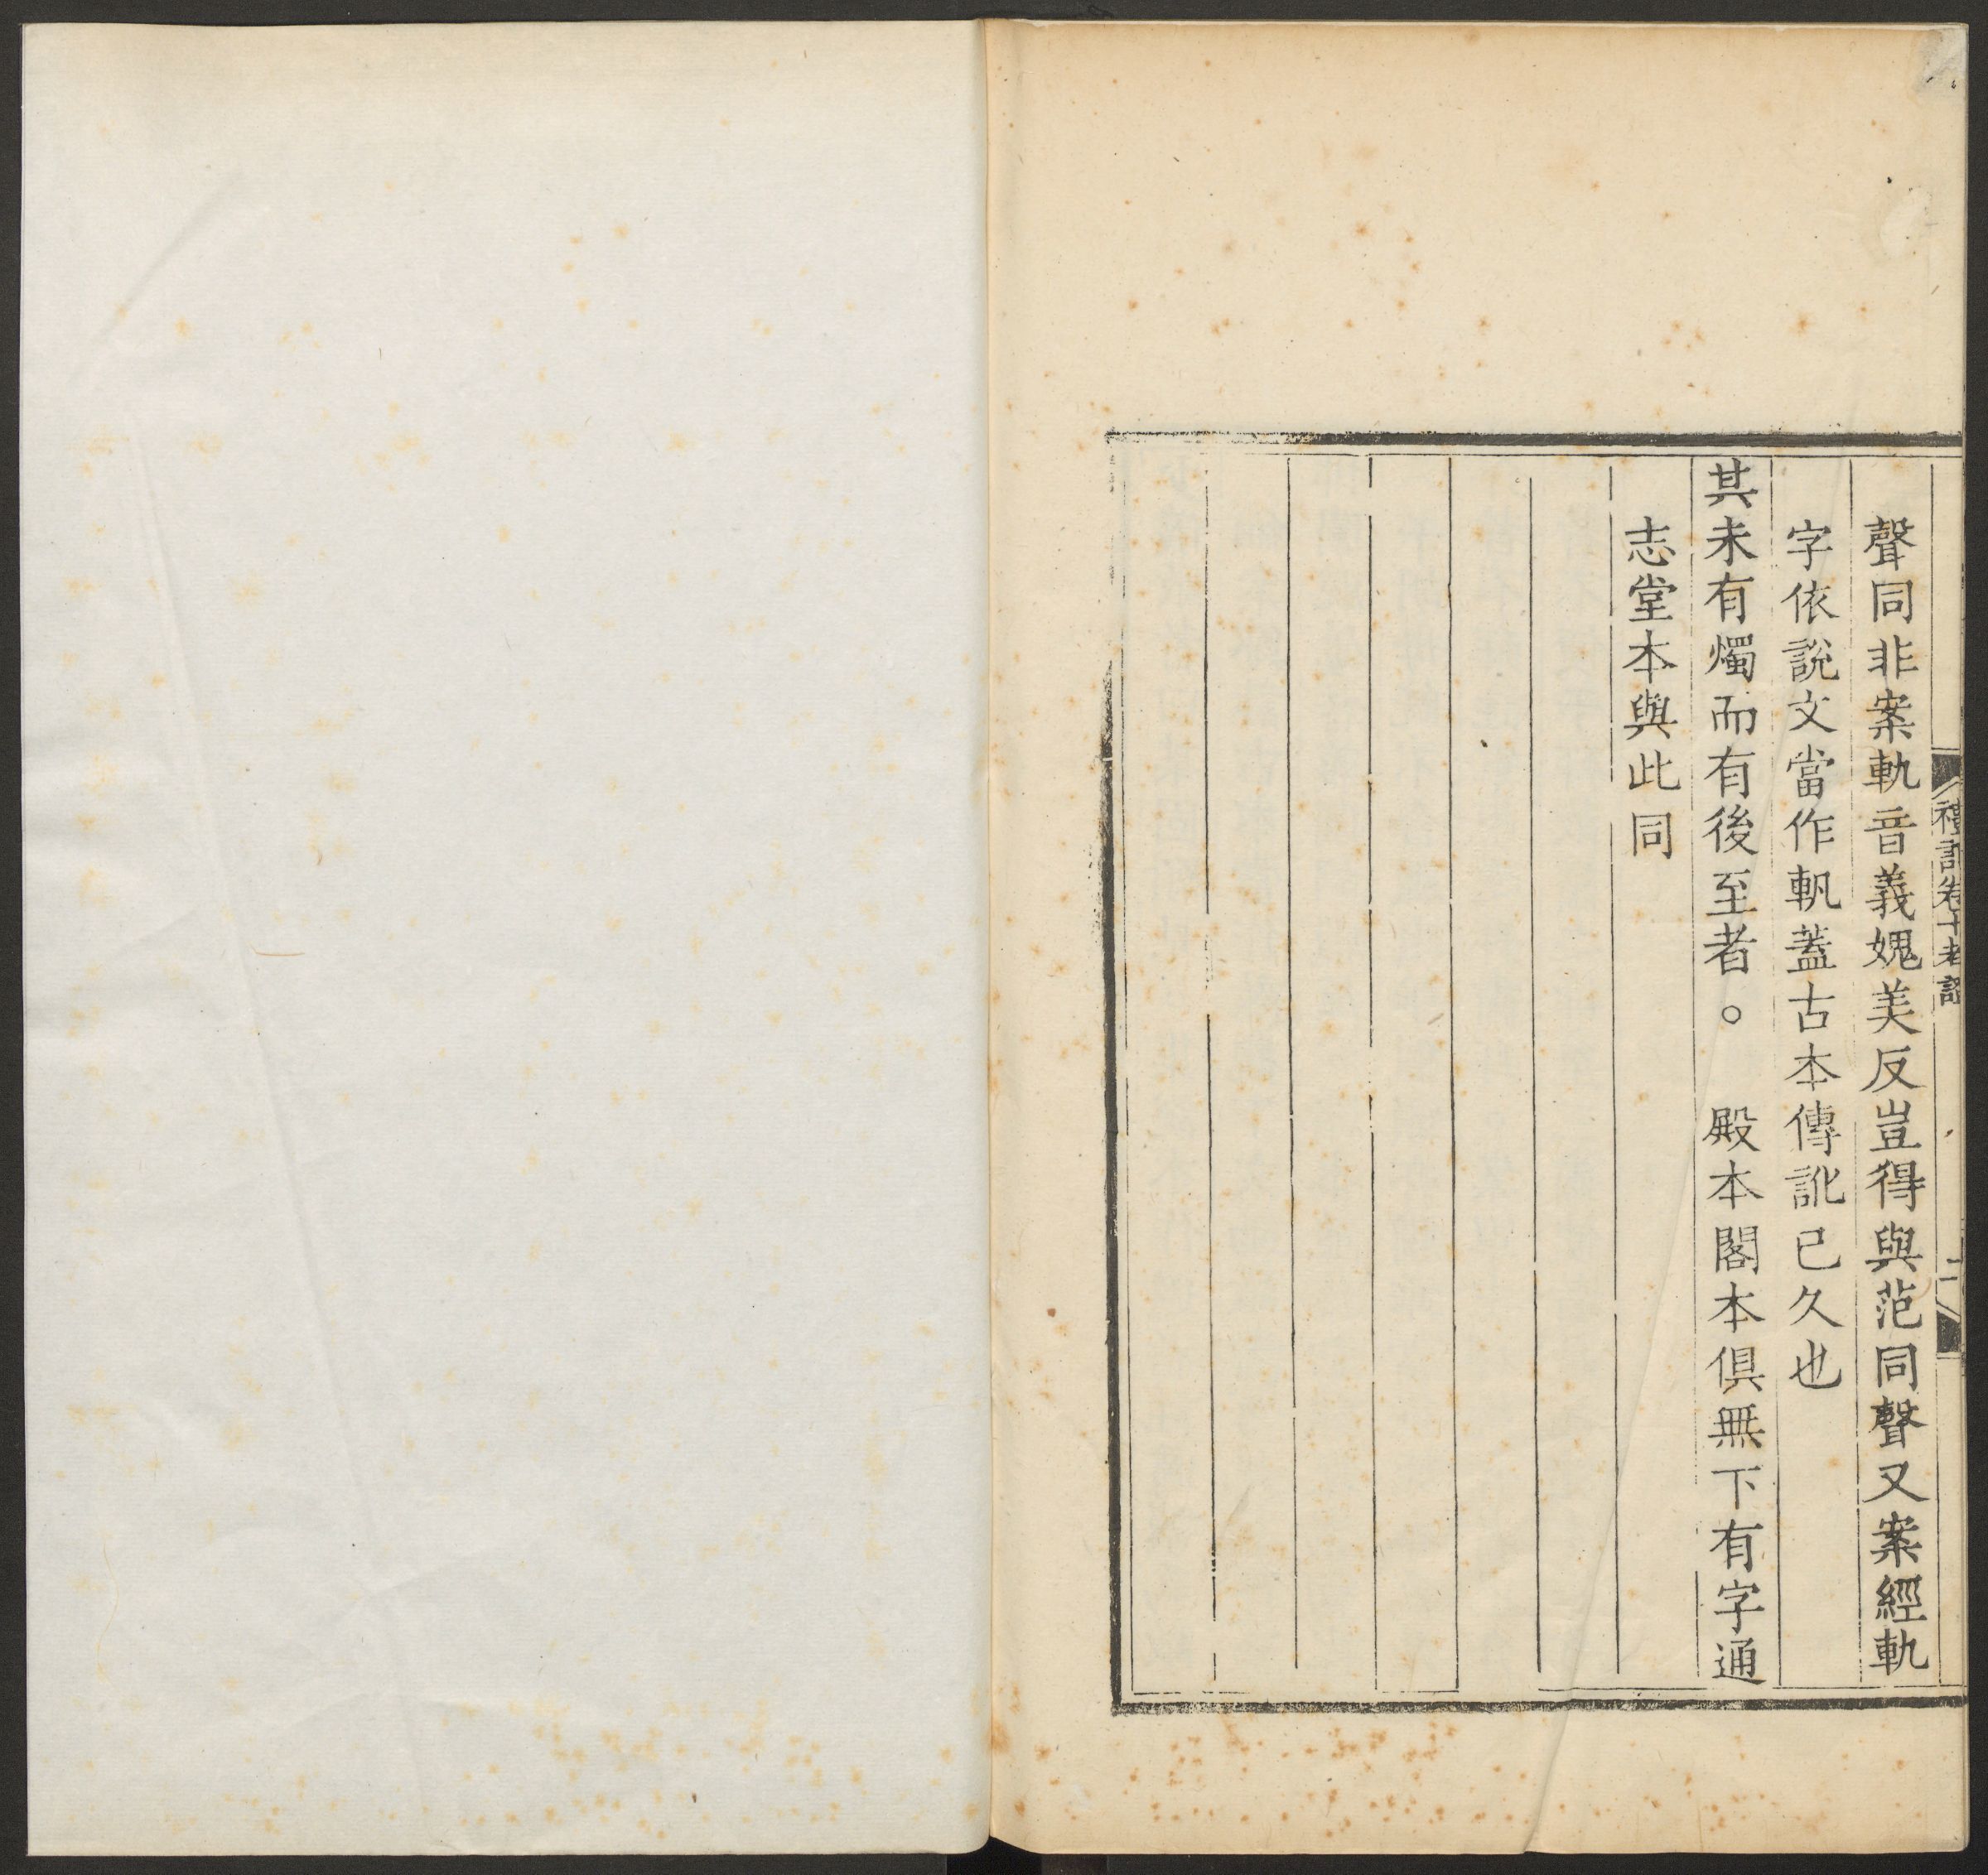 禮記卷十考證
二
聲同非案軌音義媿美反豈得與范同聲又案經軌
字依說文當作軓蓋古本傳訛已久也
其未有燭而有後至者。　殿本閣本俱無下有字通
志堂本與此同